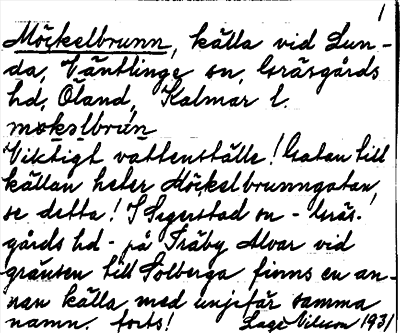 1
Möckelbrunn, källa vid Lun-
da, Ventlinge sn, Gräsgårds
hd, Öland, Kalmar l.
mokslbrun
Viktigt vattenställe! Gatan till
källan heter Möckelbrunngatan,
se detta! I Segerstad sn - Gräs-
gårds hd - på Träby Alvar vid
gränsen till Solberga finns en an-
nan källa med ungifär samma
namn. forts! Nilson 1931